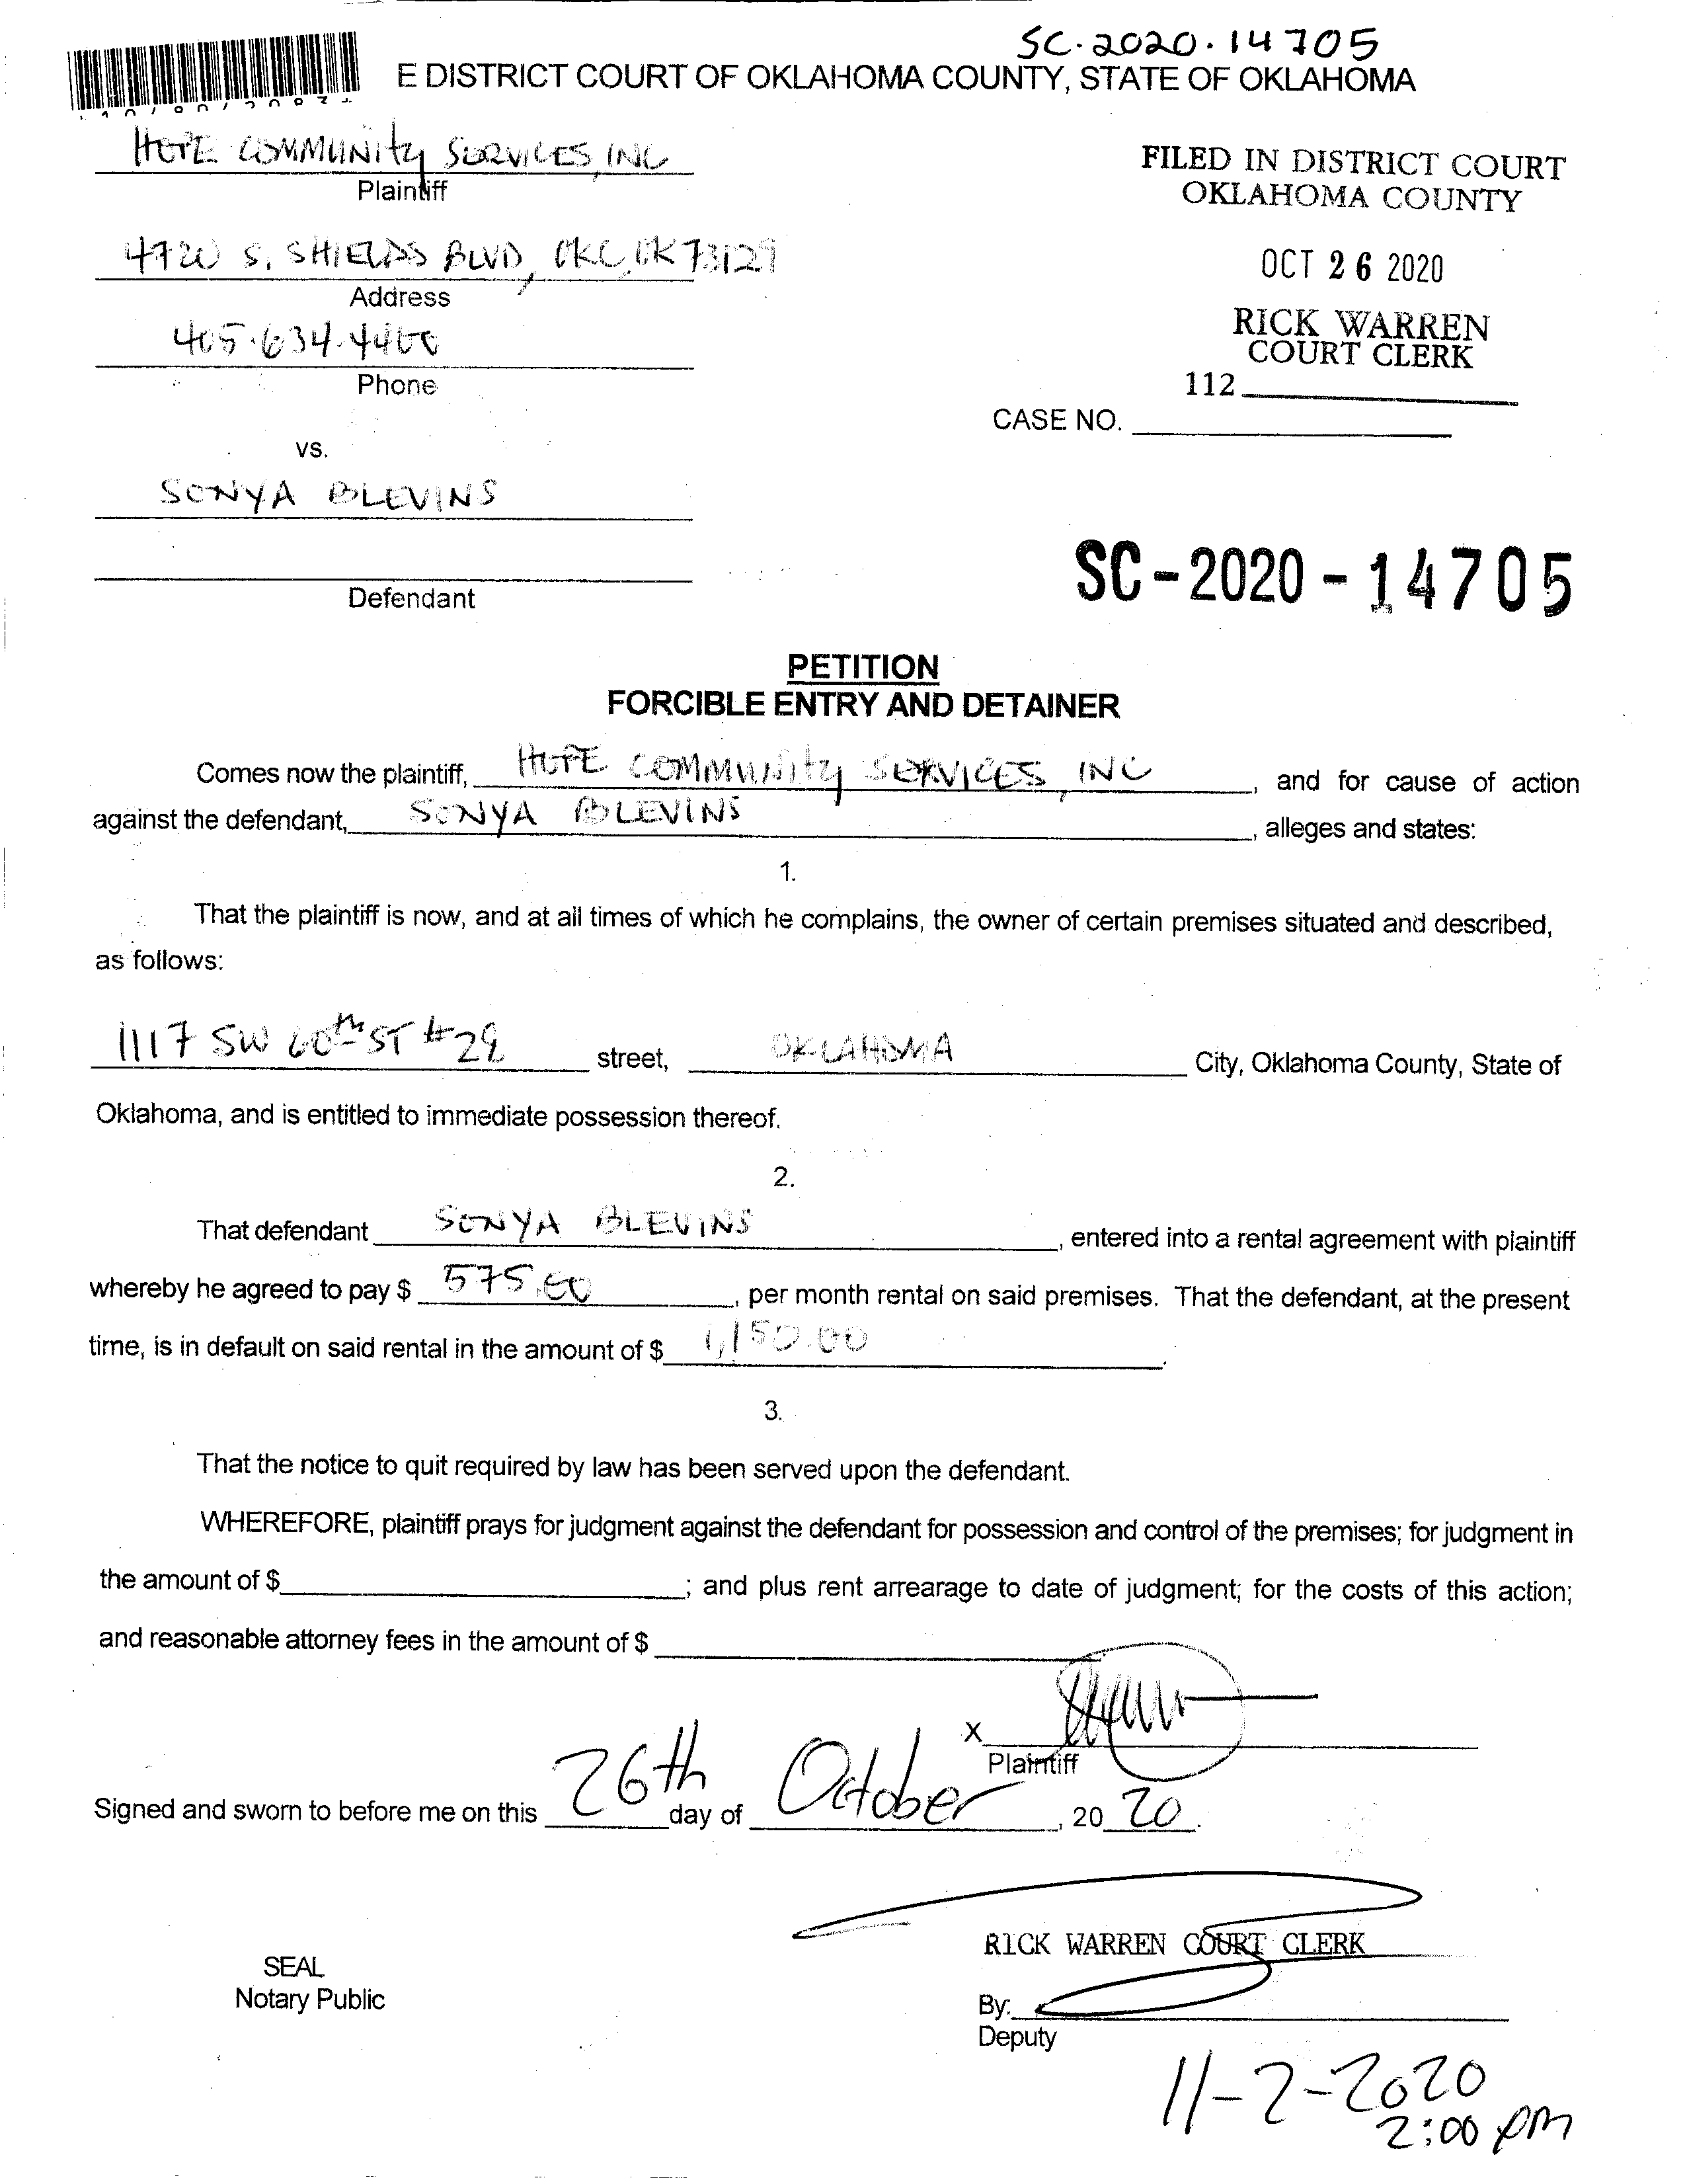 SC.2020.14705
E DISTRICT COURT OF OKLAHOMA COUNTY, STATE OF OKLAHOMA
HOPE COMMUNITY SERVICES, INC
Plaintiff
FILED IN DISTRICT COURT
OKLAHOMA COUNTY
4720 S. SHIELDS BLVD, OKC, OK 73129
Address
OCT 26 2020
405.634.4400
Phone
RICK WARREN
COURT CLERK
112
CASE NO.
vs.
SONYA BLEVINS
Defendant
SC-2020-14705
PETITION
FORCIBLE ENTRY AND DETAINER
Comes now the plaintiff, HOPE COMMUNITY SERVICES, INC, and for cause of action
against the defendant, SONYA BLEVINS, alleges and states:
1.
That the plaintiff is now, and at all times of which he complains, the owner of certain premises situated and described,
as follows:
1117 SW 60th ST #29 street, OKLAHOMA City, Oklahoma County, State of
Oklahoma, and is entitled to immediate possession thereof.
2.
That defendant SONYA BLEVINS, entered into a rental agreement with plaintiff
whereby he agreed to pay $ 575.00, per month rental on said premises. That the defendant, at the present
time, is in default on said rental in the amount of $ 1,150.00.
3.
That the notice to quit required by law has been served upon the defendant.
WHEREFORE, plaintiff prays for judgment against the defendant for possession and control of the premises; for judgment in
the amount of $ ; and plus rent arrearage to date of judgment; for the costs of this action;
and reasonable attorney fees in the amount of $
X
Plaintiff
Signed and sworn to before me on this 26th day of October, 20 20.
RICK WARREN COURT CLERK
SEAL
Notary Public
By:
Deputy
11-2-2020
2:00 pm